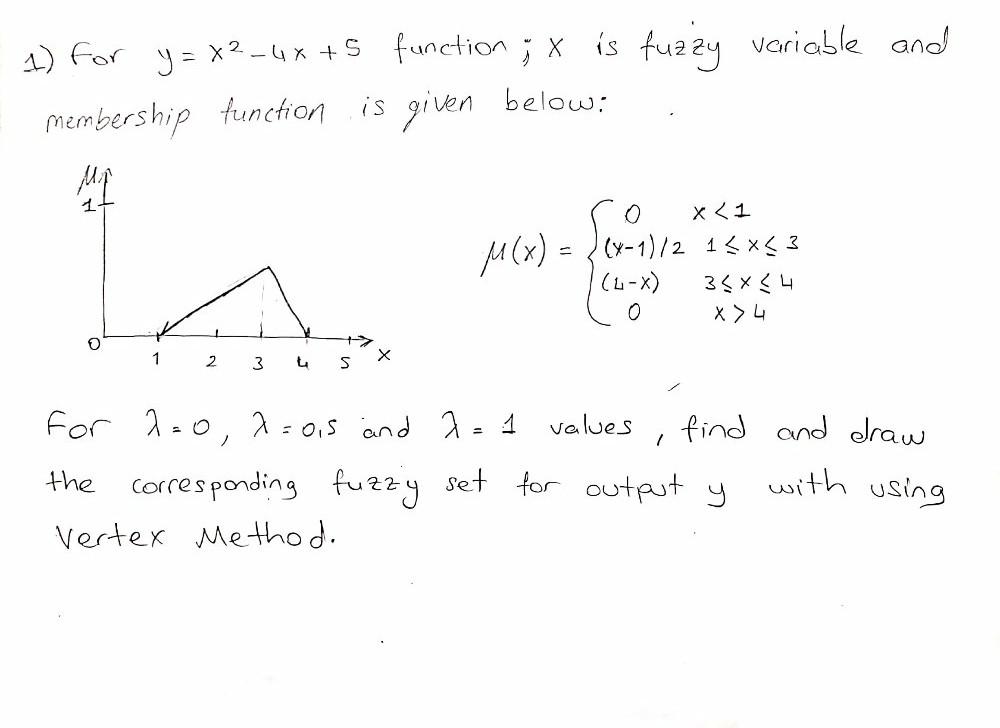 1) For y = x² - 4x + 5 function ; x is fuzzy variable and
membership function is given below:
μ
1
0
1 2 3 4 5 x
μ(x) = { 0 x < 1
(x-1)/2 1 ≤ x ≤ 3
(4-x) 3 ≤ x ≤ 4
0 x > 4
For λ = 0, λ = 0,5 and λ = 1 values, find and draw
the corresponding fuzzy set for output y with using
Vertex Method.